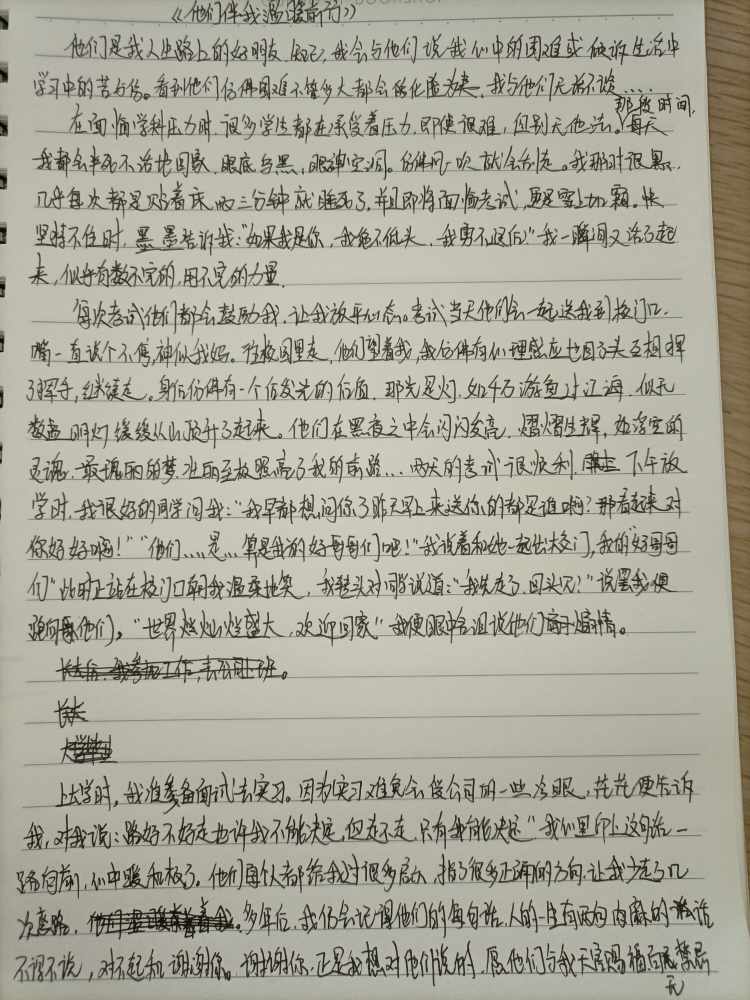 《他们伴我温暖前行》
他们是我人生路上的好朋友、知己,我会与他们说我心中的困难或倾诉生活中
学习中的苦与伤。看到他们仿佛困难不管多大都会俗化为夷,我与他们无话不谈.....
在面临学科压力时,很多学生都在承受着压力,即使很难,但别无他法。每天
那段时间,
我都会半死不活地回家,眼底乌黑,眼神空洞。仿佛风一吹就会倒走。我那时很累..
几乎每次都是贴着床两三分钟就睡死了,并且即将面临考试,更是雪上加霜。快
坚持不住时,墨墨告诉我:"如果我是你,我绝不低头,我男不惧后"我一瞬间又活了起
来,似乎有数不完的,用不完的力量.
每次考试他们都会鼓励我,让我放平心态。考试当天他们会一起送我到校门口,
嘴一直说个不停,神似我妈。往校园里走,他们望着我,我仿佛有心理感应也回了头互相挥
了挥手,继续走。身后仿佛有一个个发光的信值,那光是灯,如千万游鱼过江海,似无
数盏明灯缓缓从山顶升了起来。他们在黑夜之中会闪闪发亮,熠熠生辉,如落空的
灵魂,最瑰丽的梦,壮丽至极照亮了我的前路...两天的考试很快利,下午放
学时,我很好的同学问我:"我早都想问你了昨天早上来送你的都是谁啊?那看起来对
你好好啊!""他们....是...算是我的好哥哥们吧!"我说着和她一起出校门,我的"好哥哥
们"此时正站在校门口朝我温柔地笑,我转头对同学说道:"我先走了,回头见!"说罢我便
跑向他们。"世界灿灿烂盛大,欢迎回家"我便眼中含泪说他们煽情。
长大后,我参加工作,去公司上班。
长大
大学毕业
上大学时,我准备面试去实习。因为实习难免会受公司的一些冷眼,茫茫便告诉
我,对我说:路好不好走也许我不能决定,但走不走,只有我能决定"我心里印上这句话一
路向前,心中暖和极了。他们每个都给我过很多启示,指了很多正确的方向,让我少走了几
次弯路,多年后,我仍会记得他们的每句话,人的一生有两句肉麻的话
不得不说,对不起和谢谢你。谢谢你,正是我想对他们说的,愿他们与我天官赐福百无禁忌
无